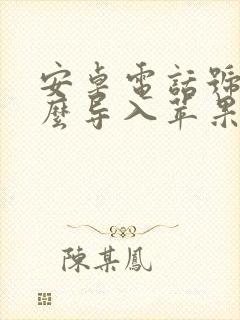 安卓電話號
麼导入苹果
陳某鳳